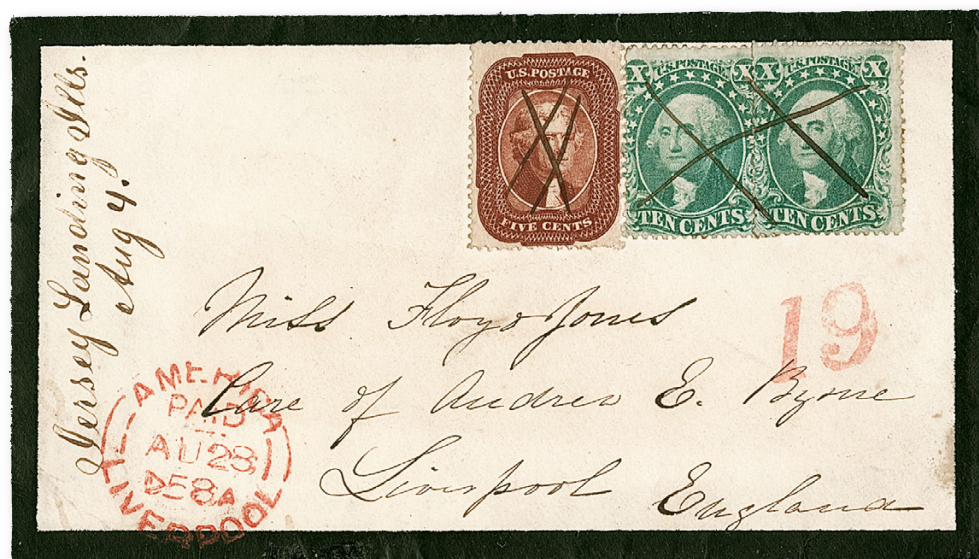 Jersey Landing Ills.
Aug 4.
U.S. POSTAGE
FIVE CENTS
X U.S. POSTAGE X
TEN CENTS
X U.S. POSTAGE X
TEN CENTS
19
Miss Floyd Jones
Care of Andrew E. Byrne
Liverpool
England
AMERICA
PAID
AU 28
58
LIVERPOOL